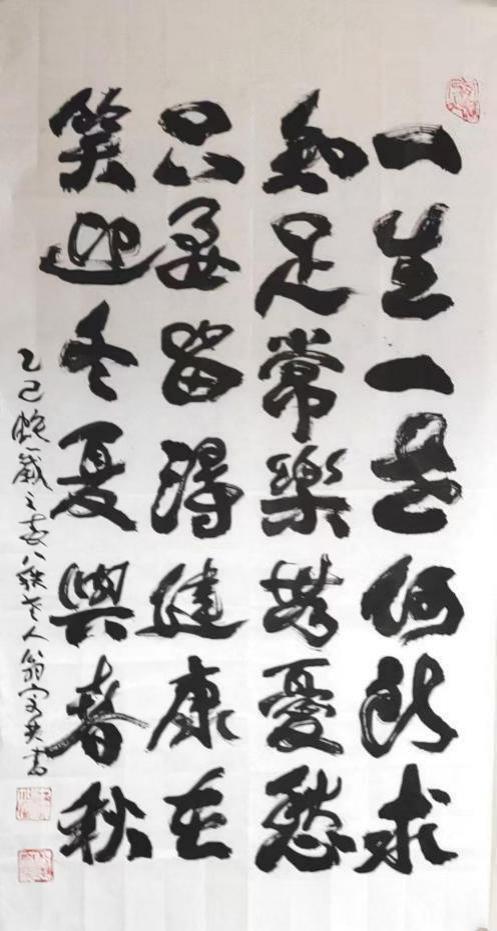 一生一世何所求
知足常樂無憂愁
只要留得健康在
笑迎冬夏與春秋
乙巳蛇歲之八秩老人翁書